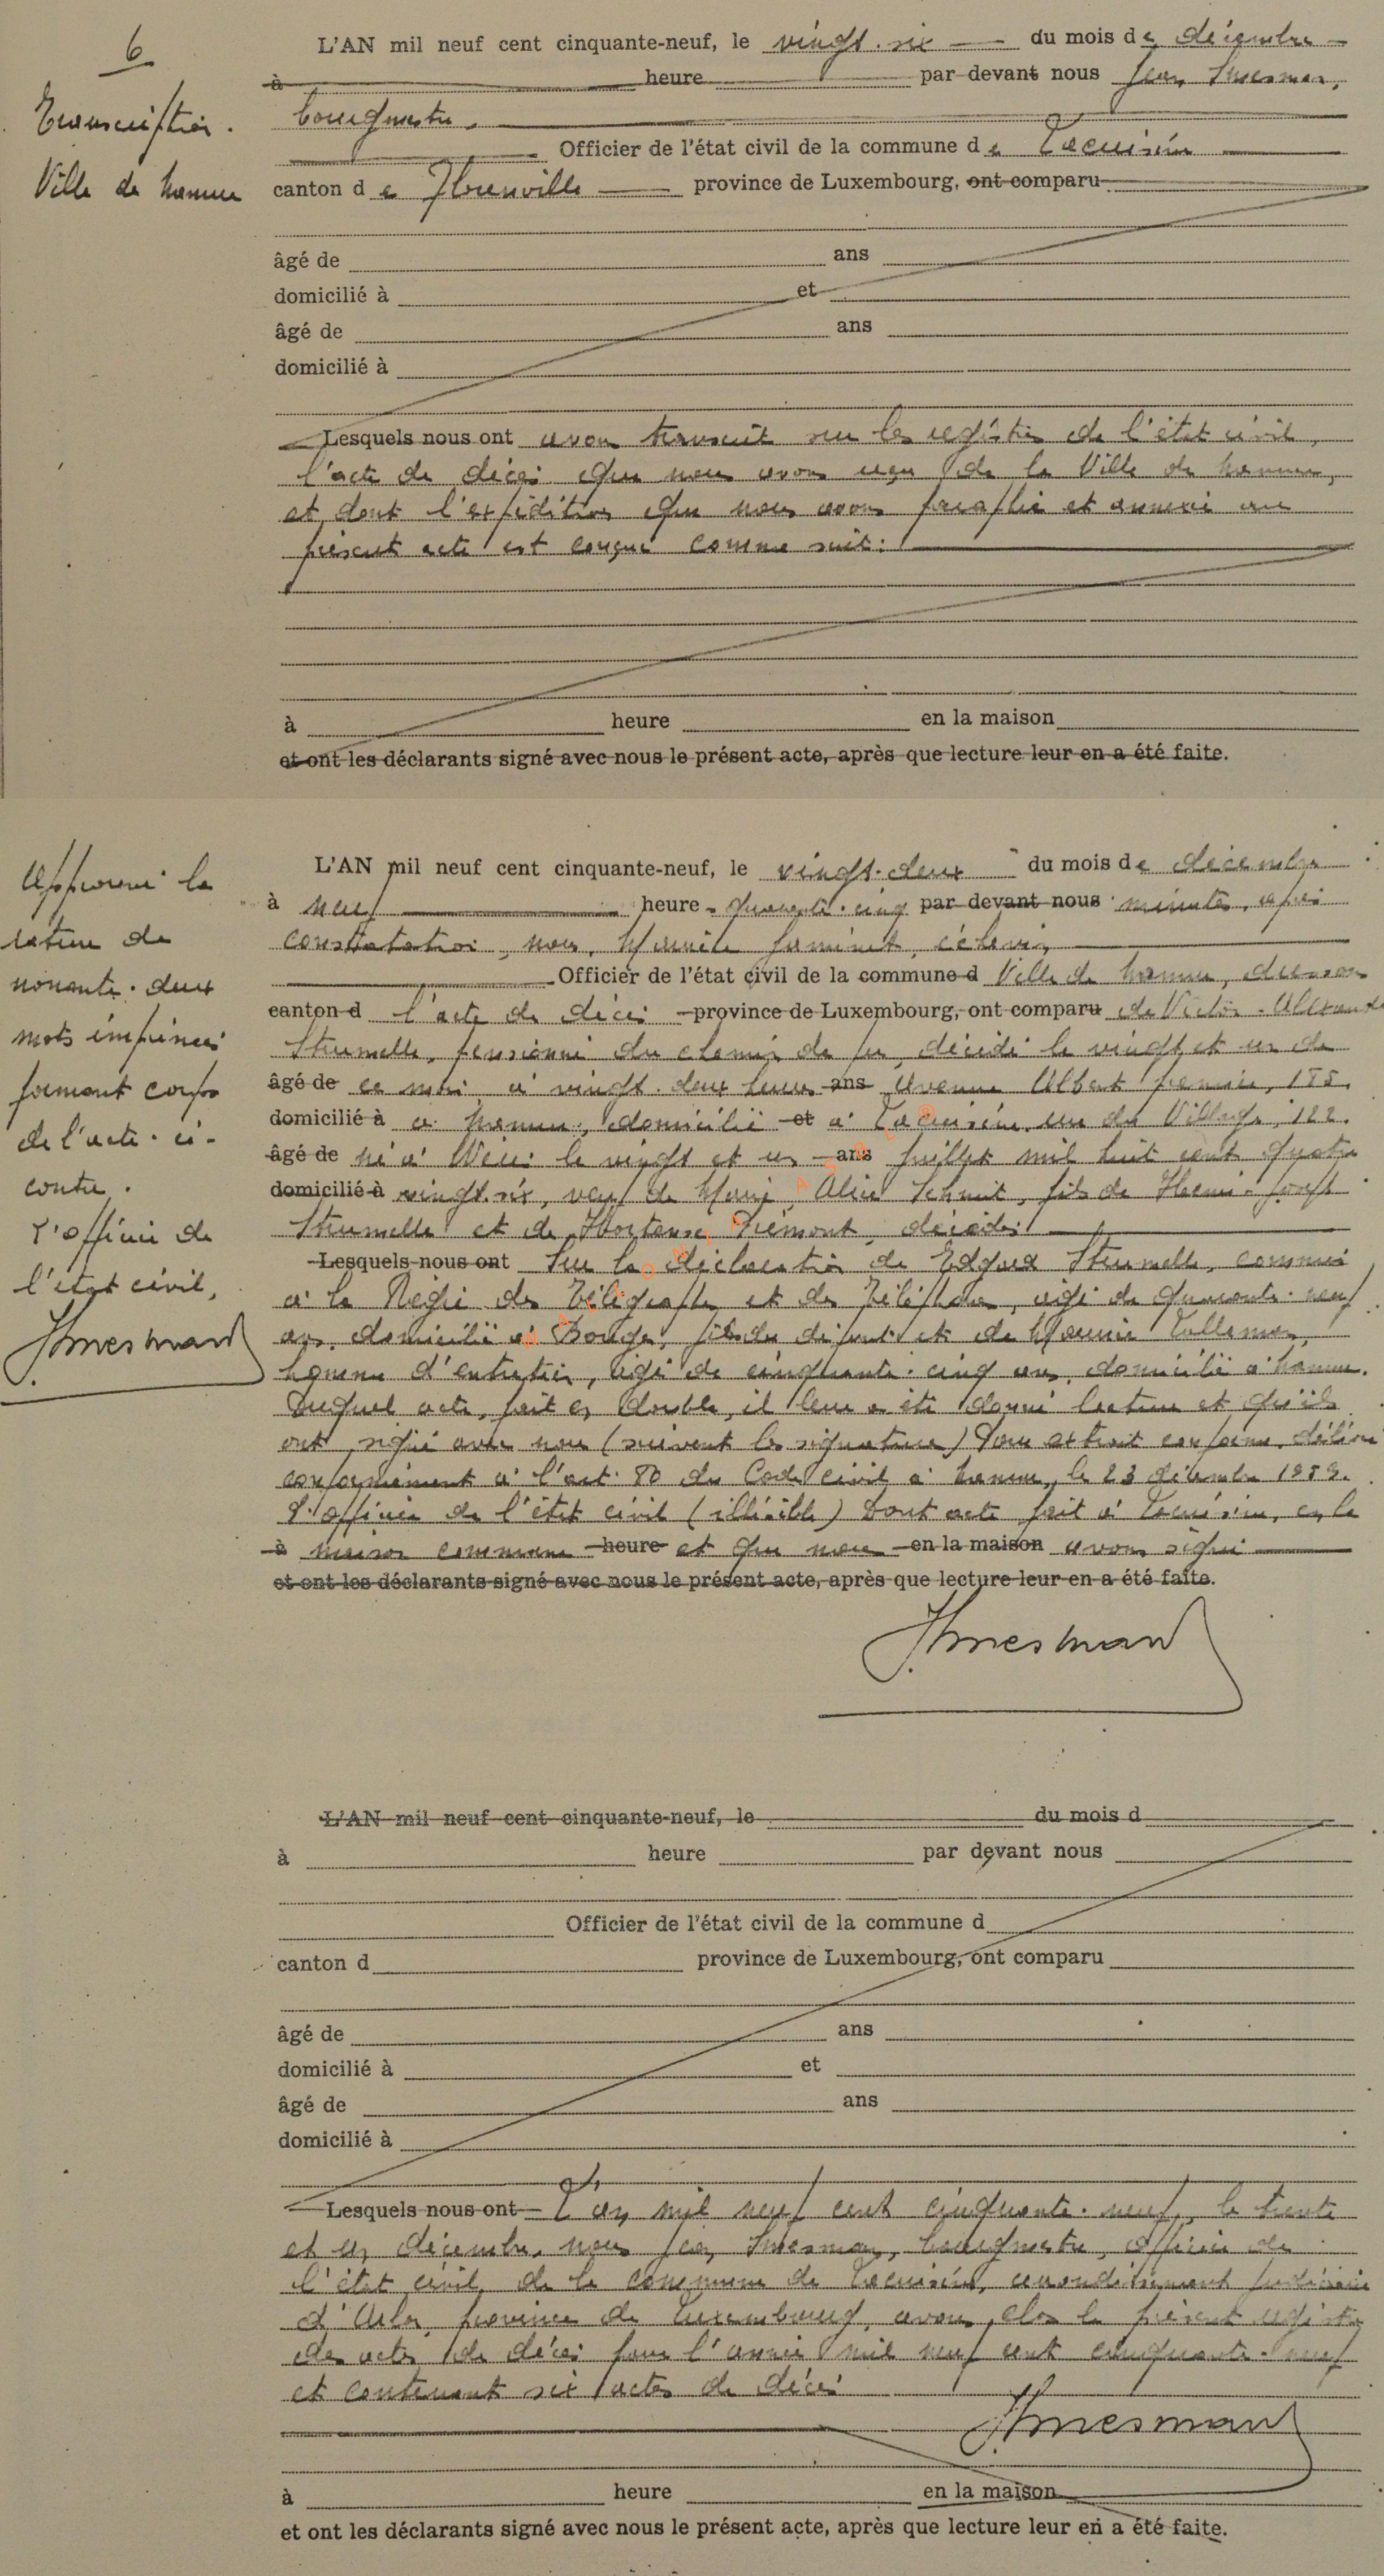 6
Transcription.
Ville de Namur
L'AN mil neuf cent cinquante-neuf, le vingt-six du mois de décembre
à heure par devant nous Jean
bourgmestre,
Officier de l'état civil de la commune de Lacuisine
canton de Florenville province de Luxembourg, ont comparu
âgé de ans
domicilié à et
âgé de ans
domicilié à
Lesquels nous ont avons transcrit sur les registres de l'état civil,
l'acte de décès que nous avons reçu de la Ville de Namur,
et dont l'expédition que nous avons paraphée et annexée au
présent acte est conçue comme suit:
à heure en la maison
et ont les déclarants signé avec nous le présent acte, après que lecture leur en a été faite.
Approuvé la
rature de
nonante-deux
mots imprimés
formant corps
de l'acte ci-
contre.
L'officier de
l'état civil,
L'AN mil neuf cent cinquante-neuf, le vingt-deux du mois de décembre
à neuf heure quarante-cinq par devant nous minutes, après
constatation, nous, Maurice Jaminet, échevin,
Officier de l'état civil de la commune d Ville de Namur, dressons
canton d l'acte de décès province de Luxembourg, ont comparu de Victor-Alexandre
Strumelle, pensionné du chemin de fer, décédé le vingt et un de
âgé de ce mois à vingt-deux heures ans Avenue Albert premier, 185,
domicilié à à Namur, domicilié et à Lacuisine, rue du Village, 122.
âgé de né à le vingt et un ans juillet mil huit cent quatre
domicilié à vingt-six, veuf de Marie Alice Schmit, fils de Henri-Joseph
Strumelle et de Hortense Piémont, décédés
Lesquels nous ont Sur la déclaration de Edgard Strumelle, commis
à la Régie des Télégraphes et des Téléphones, âgé de quarante-neuf
ans, domicilié à Bouge, fils du défunt et de Maurice Tallemans,
homme d'entretien, âgé de cinquante-cinq ans, domicilié à Namur.
Duquel acte, fait en double, il leur a été donné lecture et qu'ils
ont signé avec nous (suivent les signatures) Pour extrait conforme, délivré
conformément à l'art. 80 du Code civil à Namur, le 23 décembre 1959.
L'officier de l'état civil (illisible) Dont acte fait à Lacuisine, en la
à maison commune heure et que nous en la maison avons signé
et ont les déclarants signé avec nous le présent acte, après que lecture leur en a été faite.
L'AN mil neuf cent cinquante-neuf, le du mois d
à heure par devant nous
Officier de l'état civil de la commune d
canton d province de Luxembourg, ont comparu
âgé de ans
domicilié à et
âgé de ans
domicilié à
Lesquels nous ont L'an mil neuf cent cinquante-neuf, le trente
et un décembre, nous Jean bourgmestre, officier de
l'état civil de la commune de Lacuisine, arrondissement judiciaire
d'Arlon, province de Luxembourg, avons clos le présent registre
des actes de décès pour l'année mil neuf cent cinquante-neuf
et contenant six actes de décès
à heure en la maison
et ont les déclarants signé avec nous le présent acte, après que lecture leur en a été faite.